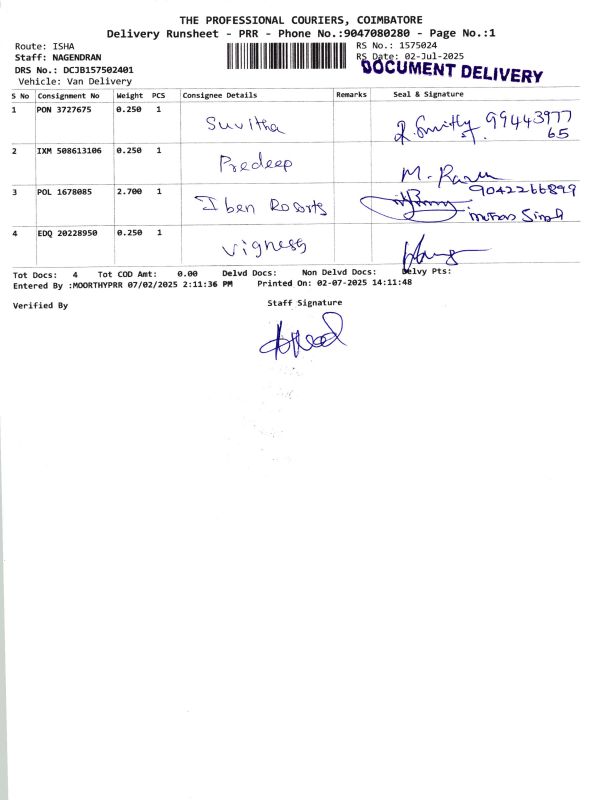 THE PROFESSIONAL COURIERS, COIMBATORE
Delivery Runsheet - PRR - Phone No.:9047080280 - Page No.:1
Route: ISHA RS No.: 1575024
Staff: NAGENDRAN RS Date: 02-Jul-2025
DRS No.: DCJB157502401 DOCUMENT DELIVERY
Vehicle: Van Delivery
S No Consignment No Weight PCS Consignee Details Remarks Seal & Signature
1 PON 3727675 0.250 1 Suvitha 99443977
65
2 IXM 508613106 0.250 1 Predeep M.
3 POL 1678085 2.700 1 Iben Rosorts 9042266899
Singh
4 EDQ 20228950 0.250 1 Vigness
Tot Docs: 4 Tot COD Amt: 0.00 Delvd Docs: Non Delvd Docs: Delvy Pts:
Entered By :MOORTHYPRR 07/02/2025 2:11:36 PM Printed On: 02-07-2025 14:11:48
Verified By Staff Signature